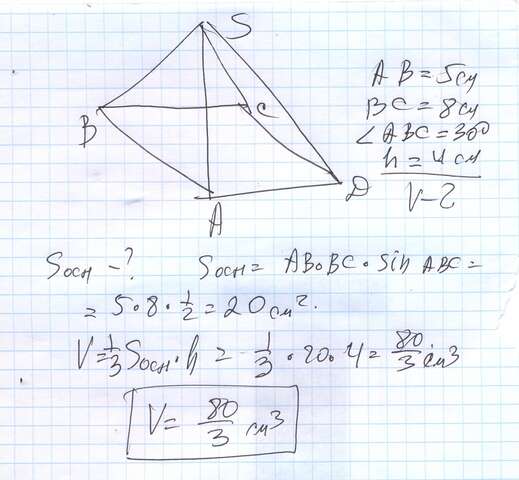 S
B
C
A
D
AB = 5см
BC = 8см
∠ABC = 30°
h = 4 см
V - ?
Sосн - ? Sосн = AB·BC·sin ABC =
= 5·8·1/2 = 20 см².
V = 1/3 Sосн·h = 1/3·20·4 = 80/3 см³
V = 80/3 см³